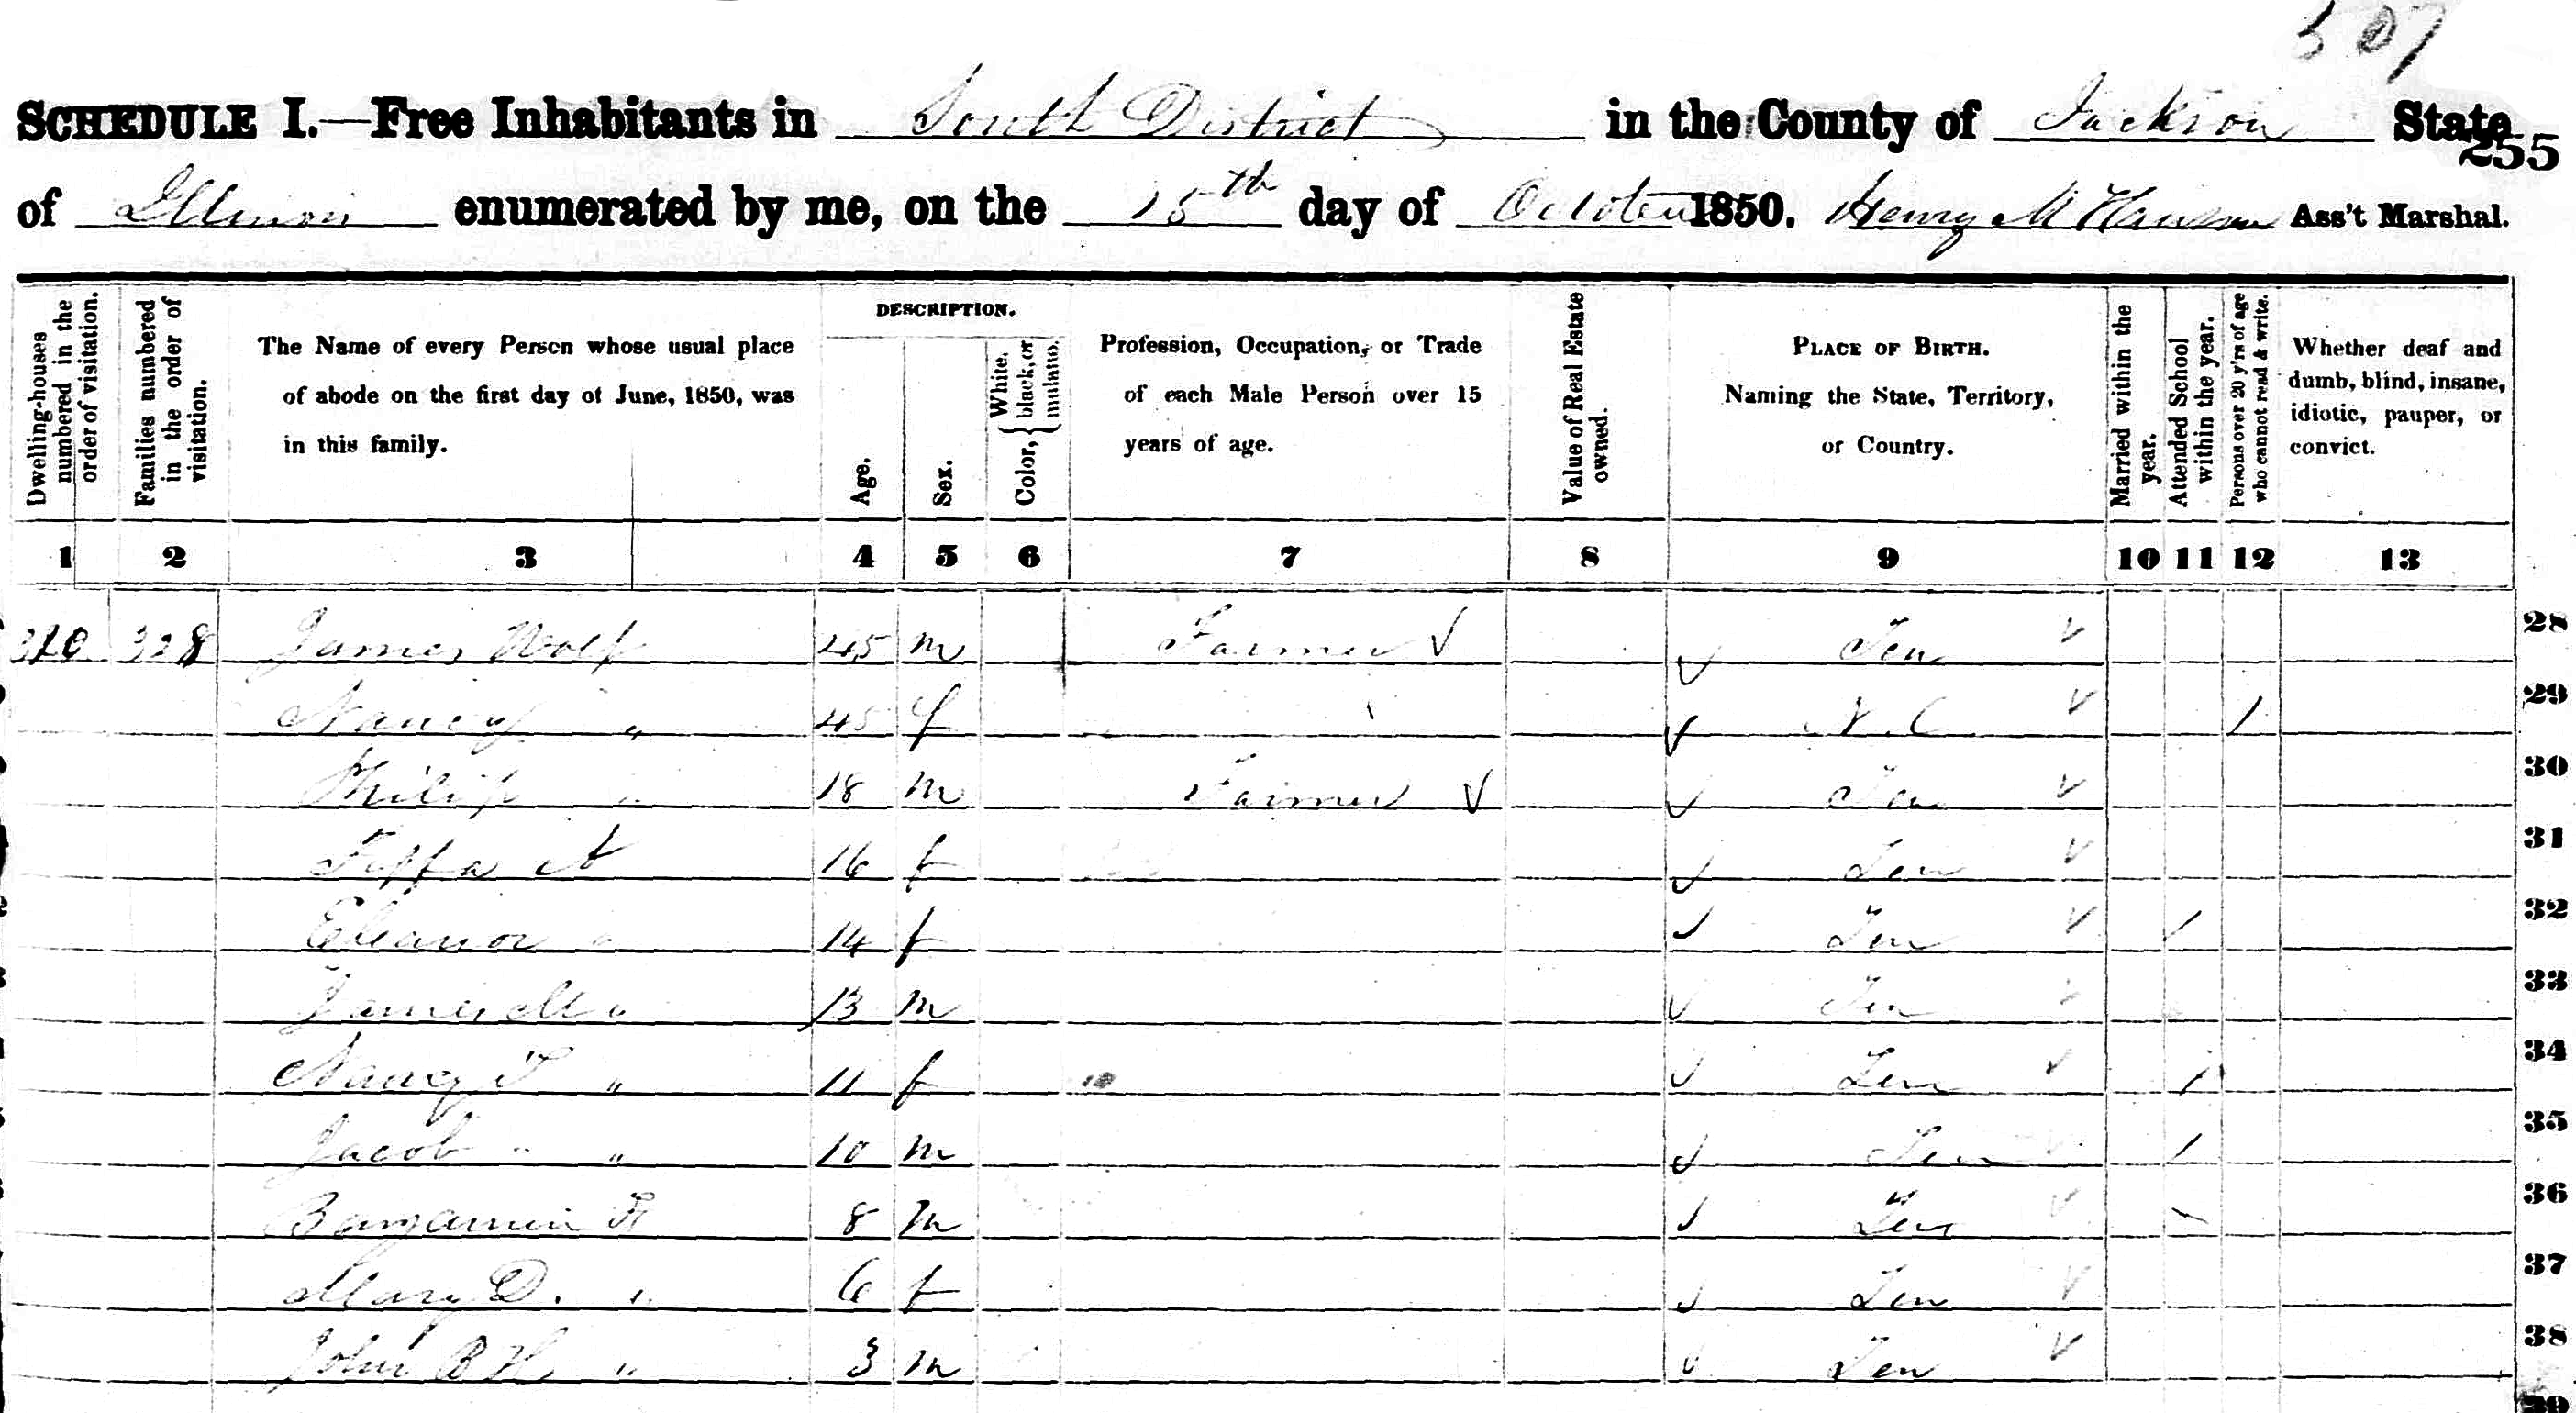 507
SCHEDULE I.—Free Inhabitants in South District in the County of Jackson State
255
of Illinois enumerated by me, on the 15th day of October 1850. Henry M Ass't Marshal.
Dwelling-houses numbered in the order of visitation.
Families numbered in the order of visitation.
The Name of every Person whose usual place of abode on the first day of June, 1850, was in this family.
DESCRIPTION.
Age.
Sex.
Color, { White, black, or mulatto.
Profession, Occupation, or Trade of each Male Person over 15 years of age.
Value of Real Estate owned.
PLACE OF BIRTH. Naming the State, Territory, or Country.
Married within the year.
Attended School within the year.
Persons over 20 y'rs of age who cannot read & write.
Whether deaf and dumb, blind, insane, idiotic, pauper, or convict.
1 2 3 4 5 6 7 8 9 10 11 12 13
328 James Wolf 45 m Farmer √ √ Ten √ 28
Nancy " 45 f √ N.C. √ / 29
Philip " 18 m Farmer √ √ Ten √ 30
A 16 f √ Ten √ 31
Eleanor " 14 f √ Ten √ / 32
James M " 13 m √ Ten √ 33
Nancy T " 11 f √ Ten √ / 34
Jacob " " 10 m √ Ten √ / 35
Benjamin F 8 m √ Ten √ \ 36
Mary D. " 6 f √ Ten √ 37
John B H " 3 m √ Ten √ 38
39